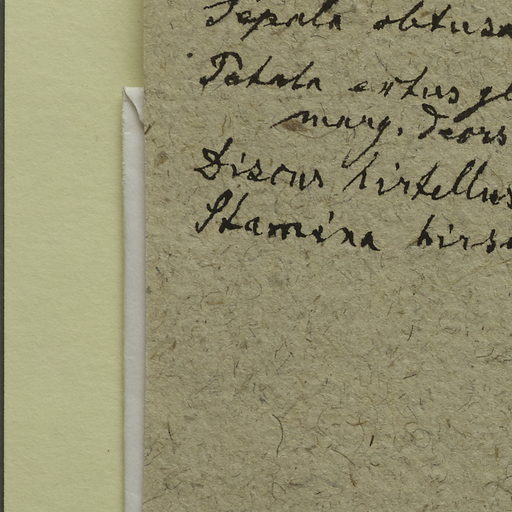 Sepala obtusa
Petala extus gl
marg. deors
Discus hirtellus
Stamina hirs